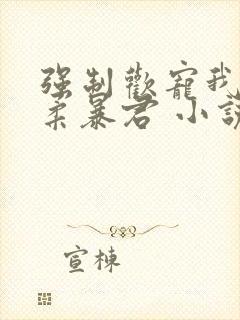 強制歡寵我
柔暴君 小說
宣棟